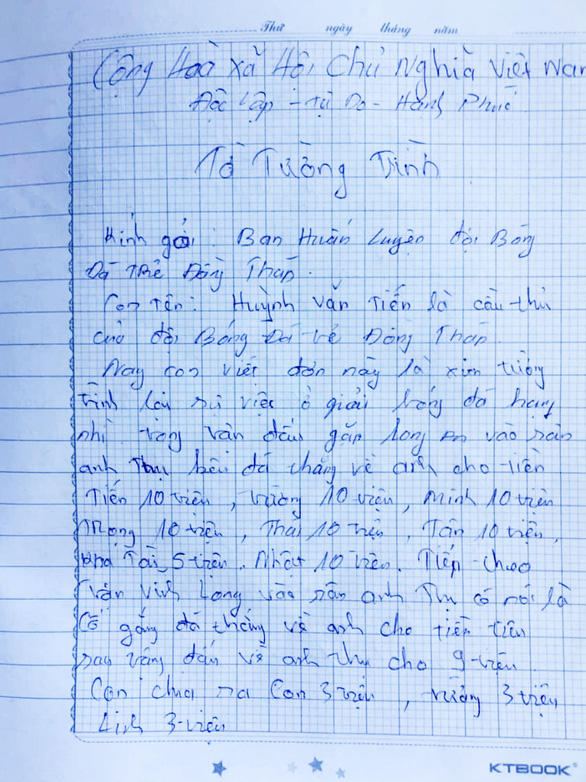 Thứ ngày tháng năm
Cộng Hoà Xã Hội Chủ Nghĩa Việt Nam
Độc Lập - Tự Do - Hạnh Phúc
Tờ Tường Trình
Kính gởi: Ban Huấn Luyện đội Bóng
Đá Trẻ Đồng Tháp.
Con Tên: Huỳnh Văn Tiến là cầu thủ
của đội Bóng Đá trẻ Đồng Tháp.
Nay con viết đơn này là xin tường
trình lại sự việc ở giải bóng đá hạng
nhì trong trận đấu gặp Long An vào sân
anh Thu kêu đá thắng về anh cho tiền
Tiến 10 triện, Vương 10 triện, Minh 10 triện
Trọng 10 triện, Thái 10 triện, Tân 10 triện,
Tài 5 triện. Nhật 10 triện. Tiếp theo
trận Vĩnh Long vào sân anh Thu có nói là
Cố gắng đá thắng về anh cho tiền tiêu
sau vòng đấu về anh thu cho 9 triện
Con chia ra Con 3 triện, Vương 3 triện
Linh 3 triện
KTBOOK